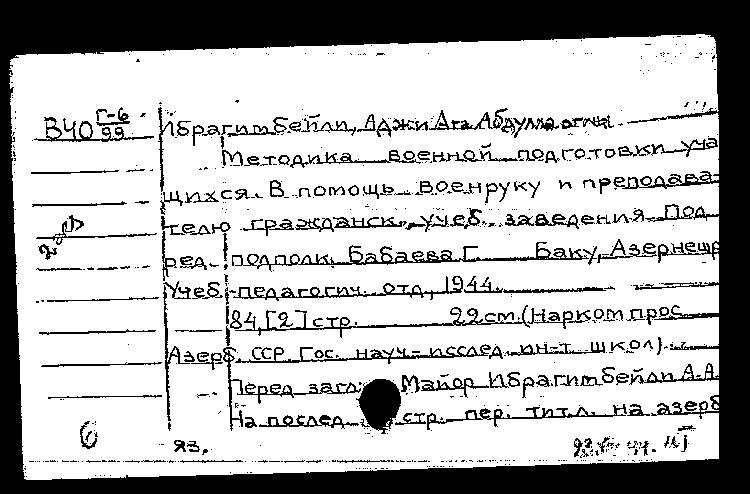 В40 Г-6/99 Ибрагимбейли, Аджи Ага Абдулла оглы
Методика военной подготовки уча
щихся. В помощь военруку и преподава-
телю гражданск. учеб. заведения. Под
ред. подполк. Бабаева Г. Баку, Азернешр
Учеб.-педагогич. отд., 1944.
84,[2] стр. 22 см. (Наркомпрос
Азерб. ССР. Гос. науч.-исслед. ин-т школ).
Перед загл.: Майор Ибрагимбейли А.А.
На послед. стр. пер. тит.л. на азерб
6 яз.